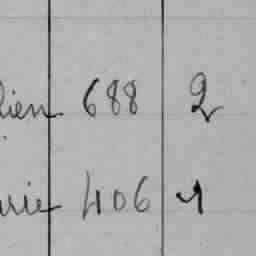 lien 688 2
urie 406 1